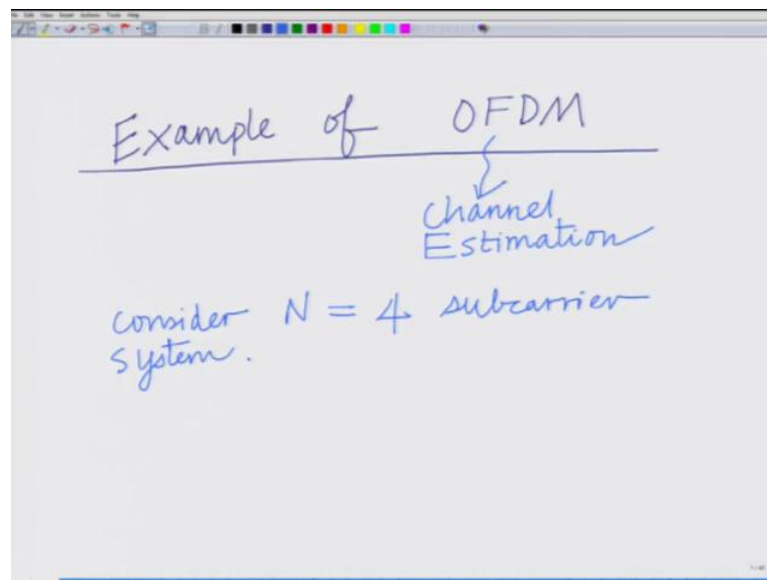 Example of OFDM
Channel
Estimation
consider N = 4 subcarrier
system.